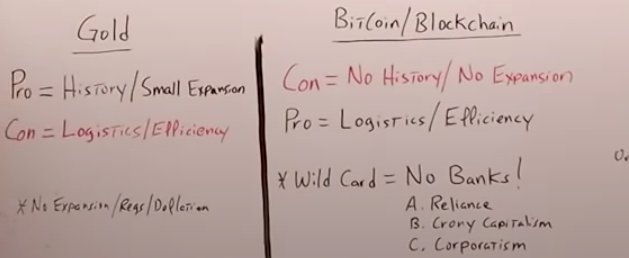 Gold
Pro = History/Small Expansion
Con = Logistics/Efficiency
* No Expansion/Regs/Depletion
BitCoin/Blockchain
Con = No History/No Expansion
Pro = Logistics/Efficiency
* Wild Card = No Banks!
A. Reliance
B. Crony Capitalism
C. Corporatism